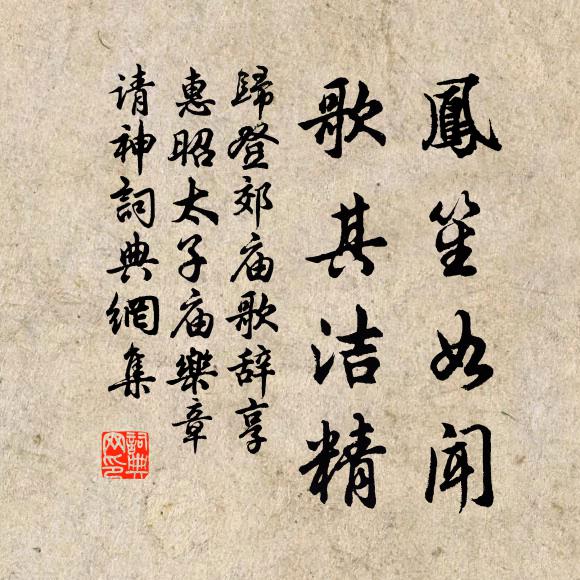 鳳笙如闻
歌其洁精
歸登郊庙歌辞享
惠昭太子庙樂章
请神詞典網集
詞典
网印